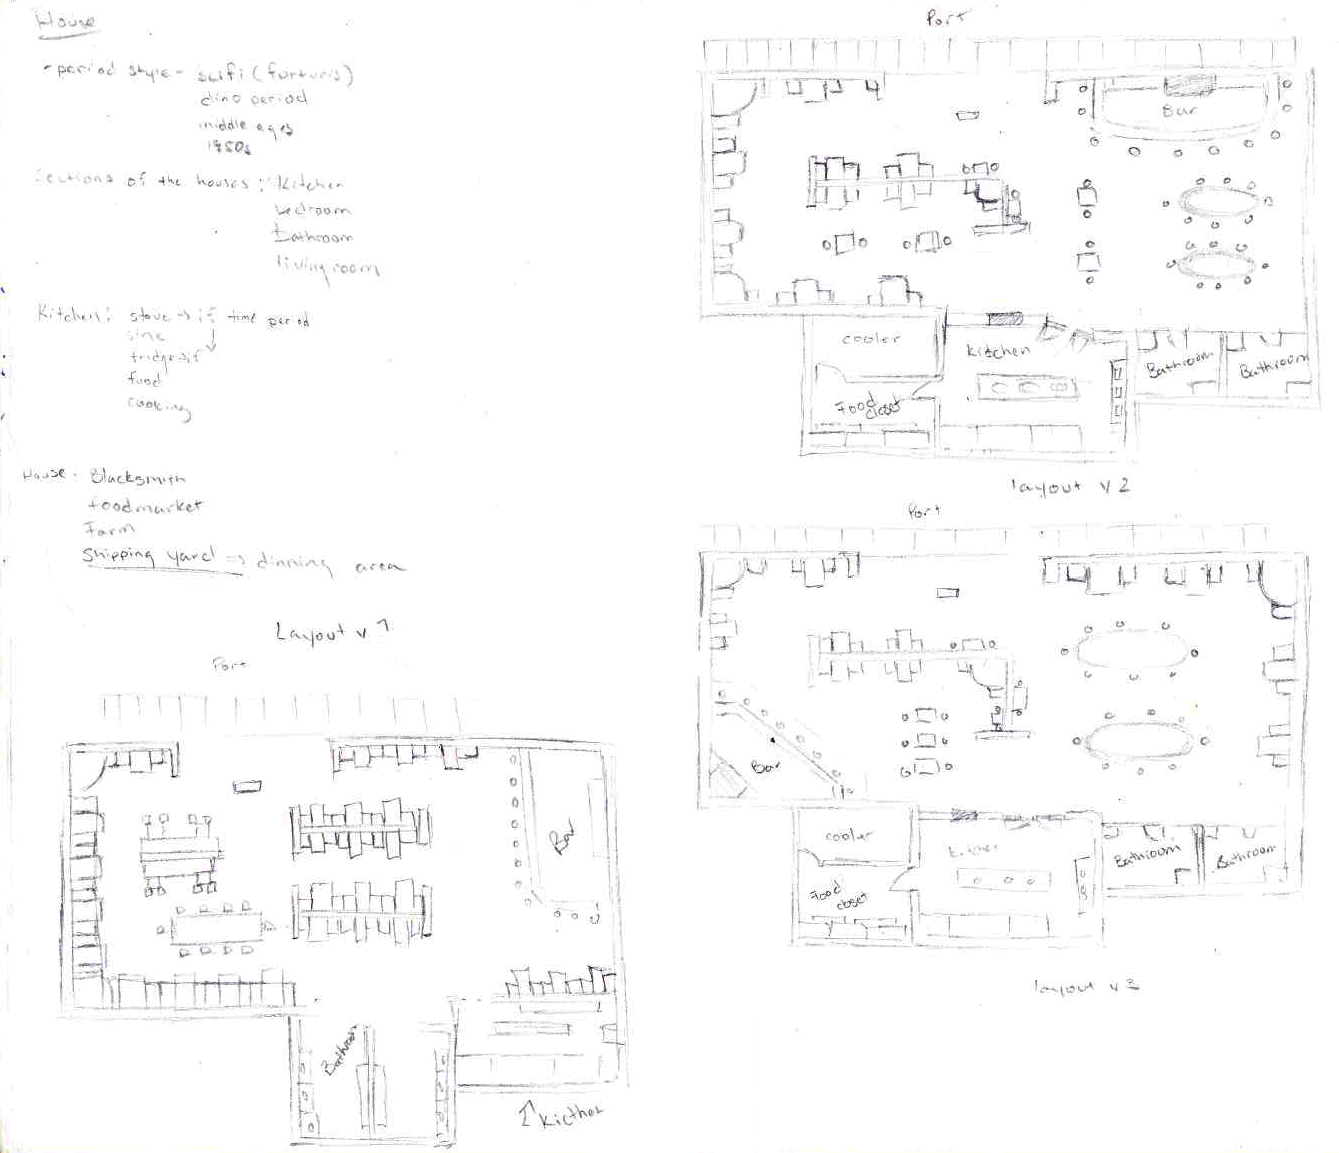 House
- period style - scifi (furturis)
dino period
middle ages
1950s
Sections of the houses : Kitchen
bedroom
bathroom
living room
Kitchen: stove → if time period
sink
fridge → if
food
cooking
House - Blacksmith
foodmarket
Farm
Shipping yard → dinning area
Layout v 1
Port
Bar
Bathroom
Kicthen
Port
Bar
cooler
kitchen
Bathroom
Bathroom
Food closet
layout v 2
Port
Bar
cooler
kitchen
Bathroom
Bathroom
Food closet
layout v 3